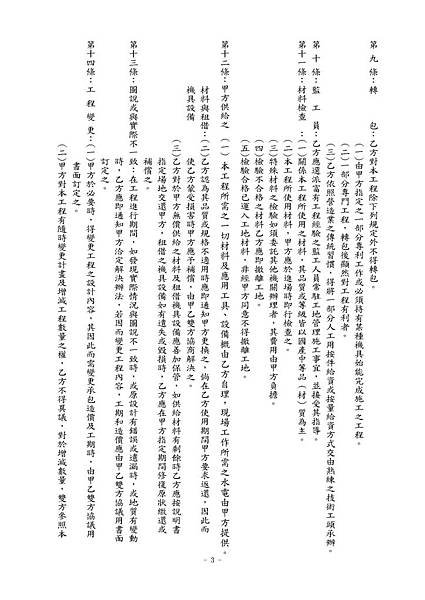 第九條：轉　　包：乙方對本工程除下列規定外不得轉包。
(一)由甲方指定之一部分專利工作或必須持有某種機具始能完成施工之工程。
(二)一部分專門工程，轉包後顯然對工程有利者。
(三)乙方依照營造業之傳統習慣，得將一部分人工用按件給資或按量給資方式交由熟練之技術工頭承辦。
第十條：監工員：乙方應遴派富有工程經驗之監工人員常駐工地管理施工事宜，並接受其指導。
第十一條：材料檢查：(一)關係本工程所使用之材料，其品質或等級皆以國產中等品(材)質為主。
(二)本工程所使用材料，甲方應於進場時即行檢查之。
(三)特殊材料之檢驗如須委託其他機關辦理者，其費用由甲方負擔。
(四)檢驗不合格之材料乙方應即撤離工地。
(五)檢驗合格已運入工地材料，非經甲方同意不得撤離工地。
第十二條：甲方供給之(一)本工程所需之一切材料及應用工具、設備概由乙方自理，現場工作所需之水電由甲方提供。
材料與租借：(二)乙方認為其品質或規格不適用時應即通知甲方更換之，倘在乙方使用期間甲方要求返還，因此而
機具設備　使乙方蒙受損害時甲方應予補償，由甲乙雙方協商解決之。
(三)乙方對於甲方無償供給之材料及租借機具設備應善加保管，如供給材料有剩餘時乙方應按說明書
指定場地交還甲方，租借之機具設備如有遺失或毀損時，乙方應在甲方指定期間修復原狀繳還或
補償之。
第十三條：圖說或與實際不一致：在工程進行期間，如發現實際情況與圖說不一致時，或原設計有錯誤或遺漏時，或地質有變動
時，乙方應即通知甲方洽定解決辦法，若因而變更工程內容，工期和造價應由甲乙雙方協議用書面
訂定之。
第十四條：工程變更：(一)甲方於必要時，得變更工程之設計內容，其因此而需變更承包造價及工期時，由甲乙雙方協議用
書面訂定之。
(二)甲方對本工程有隨時變更計畫及增減工程數量之權，乙方不得異議，對於增減數量，雙方參照本
- 3 -